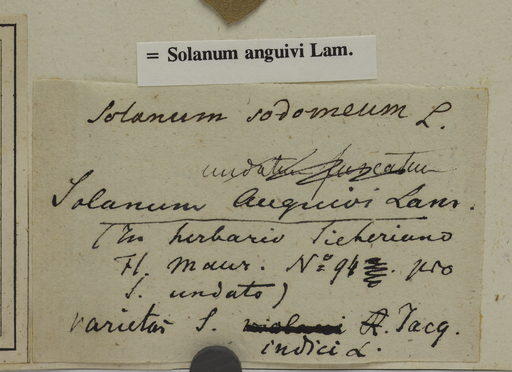 = Solanum anguivi Lam.
Solanum sodomeum L.
undatum
Solanum Anguivi Lam.
(In herbario Sieberiano
Fl. Maur. Nº 94 . pro
S. undato)
varietas S. Jacq.
indici L.